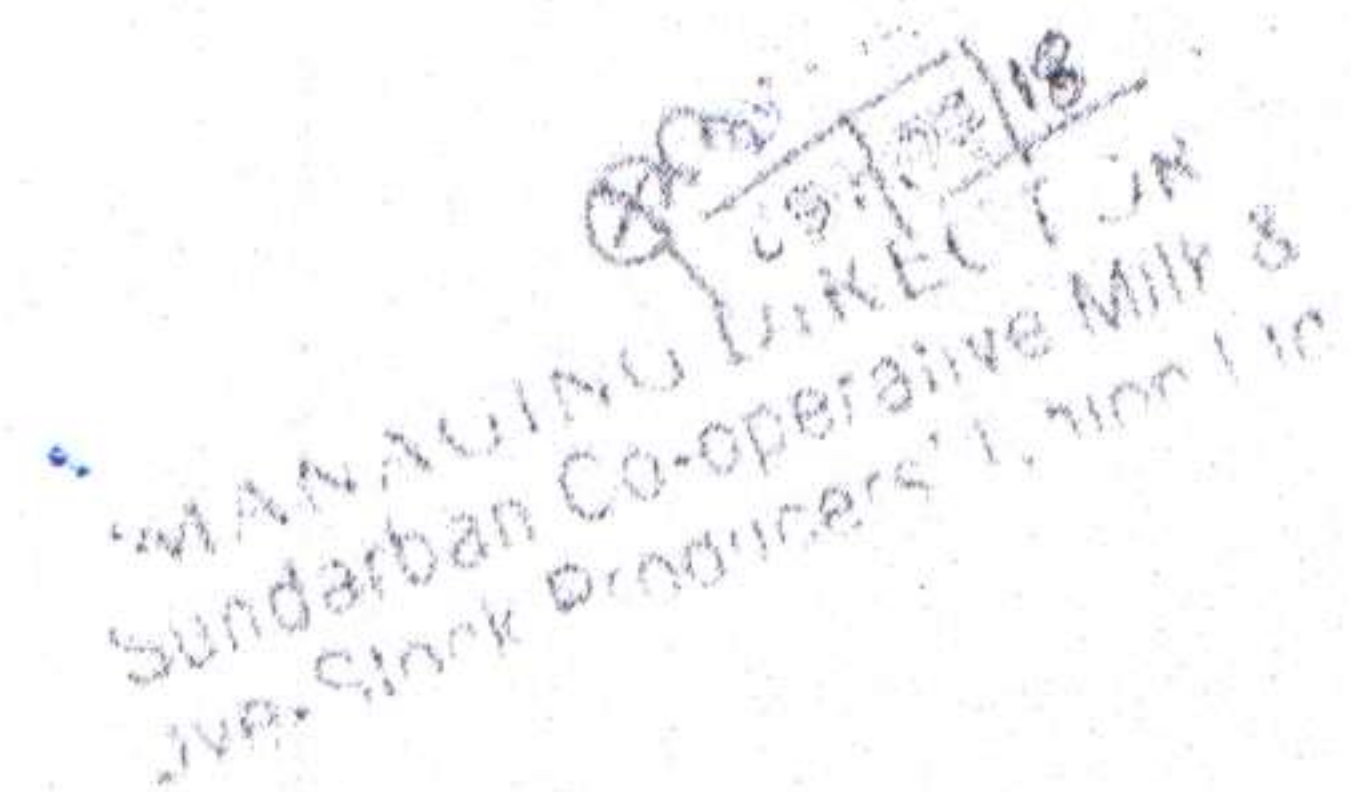 18
MANAGING DIRECTOR
Sundarban Co-operative Milk &
Live Stock Producers' Union Ltd